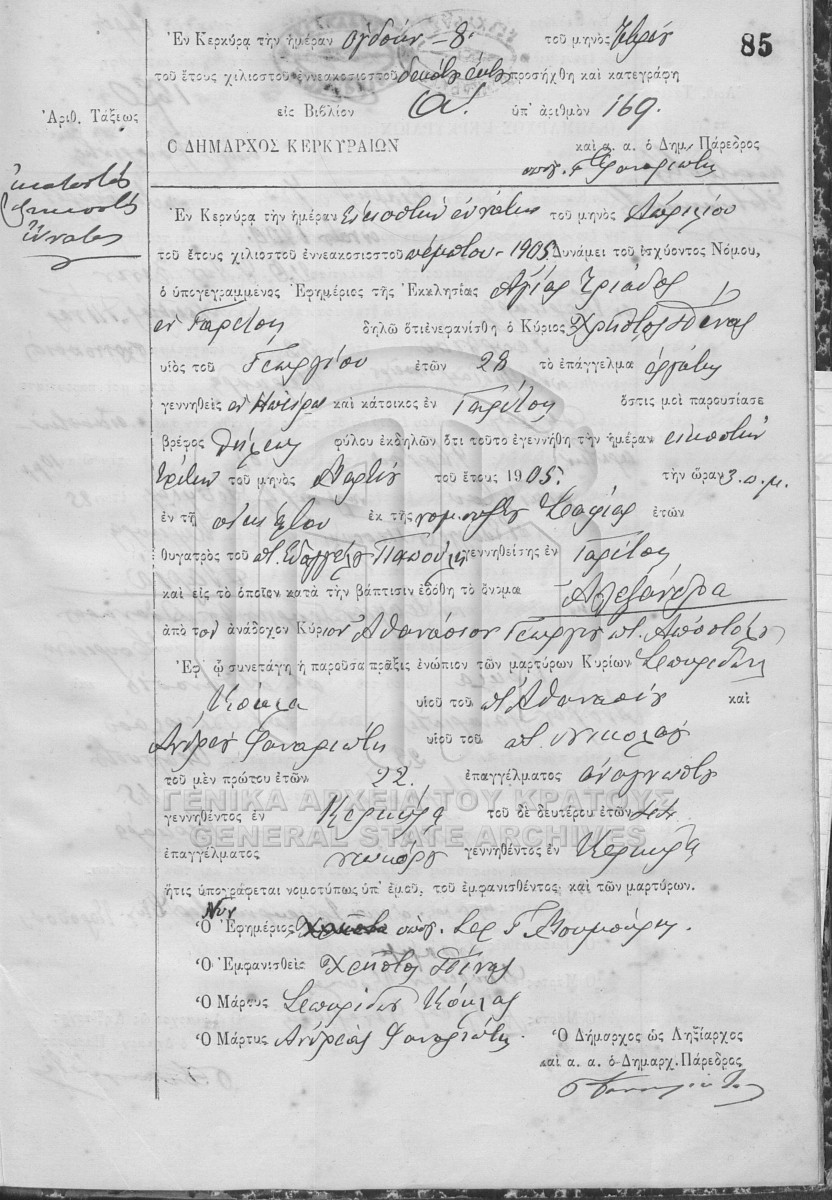 85
Ἐν Κερκύρᾳ τὴν ἡμέραν ὀγδόην - 8. τοῦ μηνὸς
τοῦ ἔτους χιλιοστοῦ ἐννεακοσιοστοῦ προσήχθη καὶ κατεγράφη
Ἀριθ. Τάξεως εἰς Βιβλίον ὑπ' ἀριθμὸν 169.
Ο ΔΗΜΑΡΧΟΣ ΚΕΡΚΥΡΑΙΩΝ καὶ α. α. ὁ Δημ. Πάρεδρος
ὑπογ. Γ. Φαναριώτης
ἑκατοστὸς
ἑξηκοστὸς
ἔννατος
Ἐν Κερκύρᾳ τὴν ἡμέραν εἰκοστὴν ἐννάτην τοῦ μηνὸς Ἀπριλίου
τοῦ ἔτους χιλιοστοῦ ἐννεακοσιοστοῦ πέμπτου - 1905 Δυνάμει τοῦ ἰσχύοντος Νόμου,
ὁ ὑπογεγραμμένος Ἐφημέριος τῆς Ἐκκλησίας Ἁγίας Τριάδος
ἐν Γαρίτσῃ δηλῶ ὅτι ἐνεφανίσθη ὁ Κύριος Χρῆστος
υἱὸς τοῦ Γεωργίου ἐτῶν 28 τὸ ἐπάγγελμα ἐργάτης
γεννηθεὶς ἐν Ἠπείρῳ καὶ κάτοικος ἐν Γαρίτσῃ ὅστις μοὶ παρουσίασε
βρέφος θήλεος φύλου ἐκδηλῶν ὅτι τοῦτο ἐγεννήθη τὴν ἡμέραν εἰκοστὴν
τρίτην τοῦ μηνὸς Μαρτίου τοῦ ἔτους 1905. τὴν ὥραν 3. π. μ.
ἐν τῇ οἰκίᾳ του ἐκ τῆς νομ. συζύγου Σοφίας ἐτῶν
θυγατρὸς τοῦ π. Εὐαγγέλου γεννηθείσης ἐν Γαρίτσῃ
καὶ εἰς τὸ ὁποῖον κατὰ τὴν βάπτισιν ἐδόθη τὸ ὄνομα Ἀλεξάνδρα
ἀπὸ τὸν ἀνάδοχον Κύριον Ἀθανάσιον Γεωργίου π. Ἀποστόλου
Ἐφ' ᾧ συνετάγη ἡ παροῦσα πρᾶξις ἐνώπιον τῶν μαρτύρων Κυρίων Σπυρίδωνος
Κόκλα υἱοῦ τοῦ π. Ἀθανασίου καὶ
Ἀνδρέου Φαναριώτη υἱοῦ τοῦ π. Νικολάου
τοῦ μὲν πρώτου ἐτῶν 22. ἐπαγγέλματος ἀναγνώστου
ΓΕΝΙΚΑ ΑΡΧΕΙΑ ΤΟΥ ΚΡΑΤΟΥΣ
γεννηθέντος ἐν Κερκύρᾳ τοῦ δὲ δευτέρου ἐτῶν
GENERAL STATE ARCHIVES
ἐπαγγέλματος νεωκόρου γεννηθέντος ἐν Κερκύρᾳ
ἥτις ὑπογράφεται νομοτύπως ὑπ' ἐμοῦ, τοῦ ἐμφανισθέντος καὶ τῶν μαρτύρων.
Ὁ Ἐφημέριος ὑπογ.
Ὁ Ἐμφανισθεὶς Χρῆστος
Ὁ Μάρτυς Σπυρίδων Κόκλας
Ὁ Μάρτυς Ἀνδρέας Φαναριώτης.
Ὁ Δήμαρχος ὡς Ληξίαρχος
καὶ α. α. ὁ Δημαρχ. Πάρεδρος
Γ. Φαναριώτης